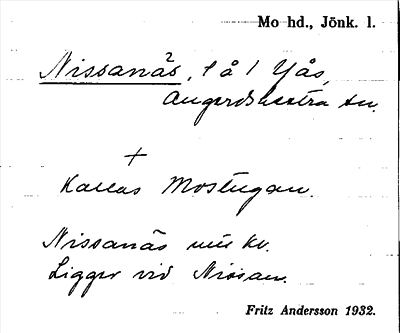 Mo hd., Jönk. l.
Nissanäs, l å l Yås,
Angerdshestra sn.
+
Kallas Mostugan.
Nissanäs kv.
Ligger vid Nissan.
Fritz Andersson 1932.